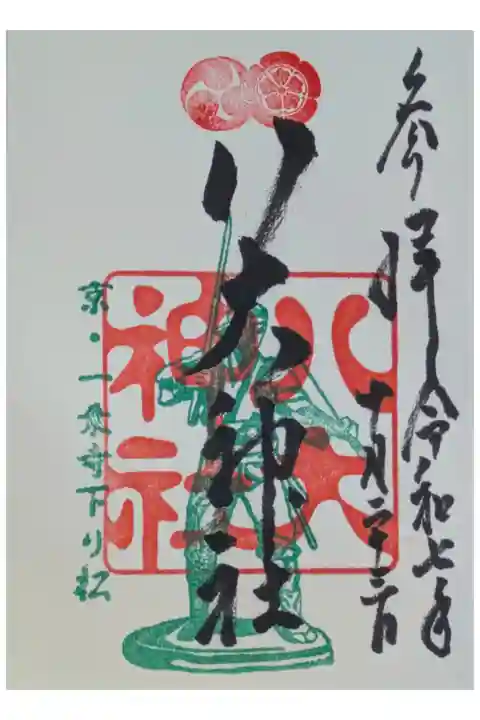 参拝 令和七年
十月二十三日
八大神社
八大神社
京・一乗寺下り松